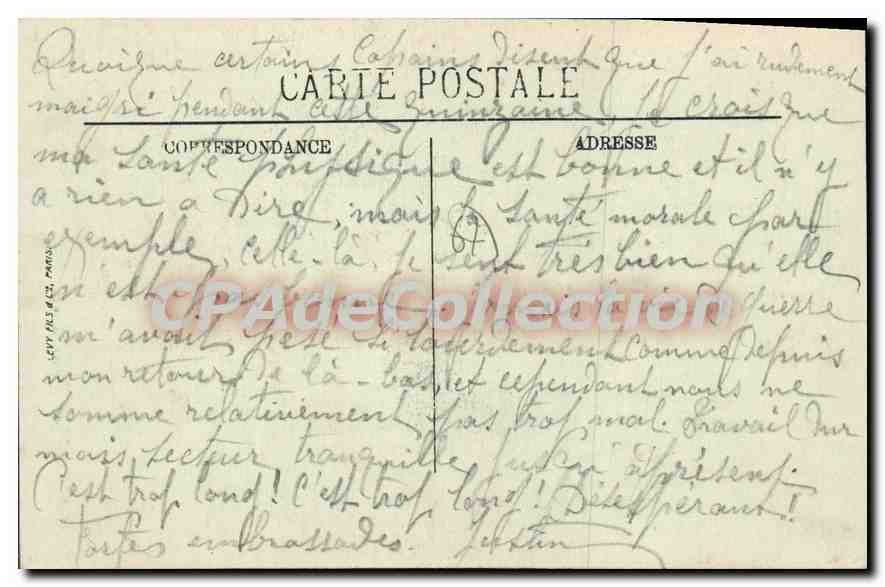 Quoique certains Copains disent que j'ai rudement
CARTE POSTALE
maigri pendant cette quinzaine, je crois que
CORRESPONDANCE
ADRESSE
ma santé physique est bonne et il n'y
a rien a Dire, mais la santé morale par
67
exemple, celle-là, je sent très bien qu'elle
n'est pas la vie de guerre
CPAdeCollection
m'avait pesé si lourdement comme Depuis
mon retour De là-bas, et cependant nous ne
somme relativement pas trop mal. Travail dur
mais secteur tranquille jusqu'à présent.
C'est trop long! C'est trop long! Désespérant!
Fortes embrassades. Justin
LEVY FILS & Cie, PARIS